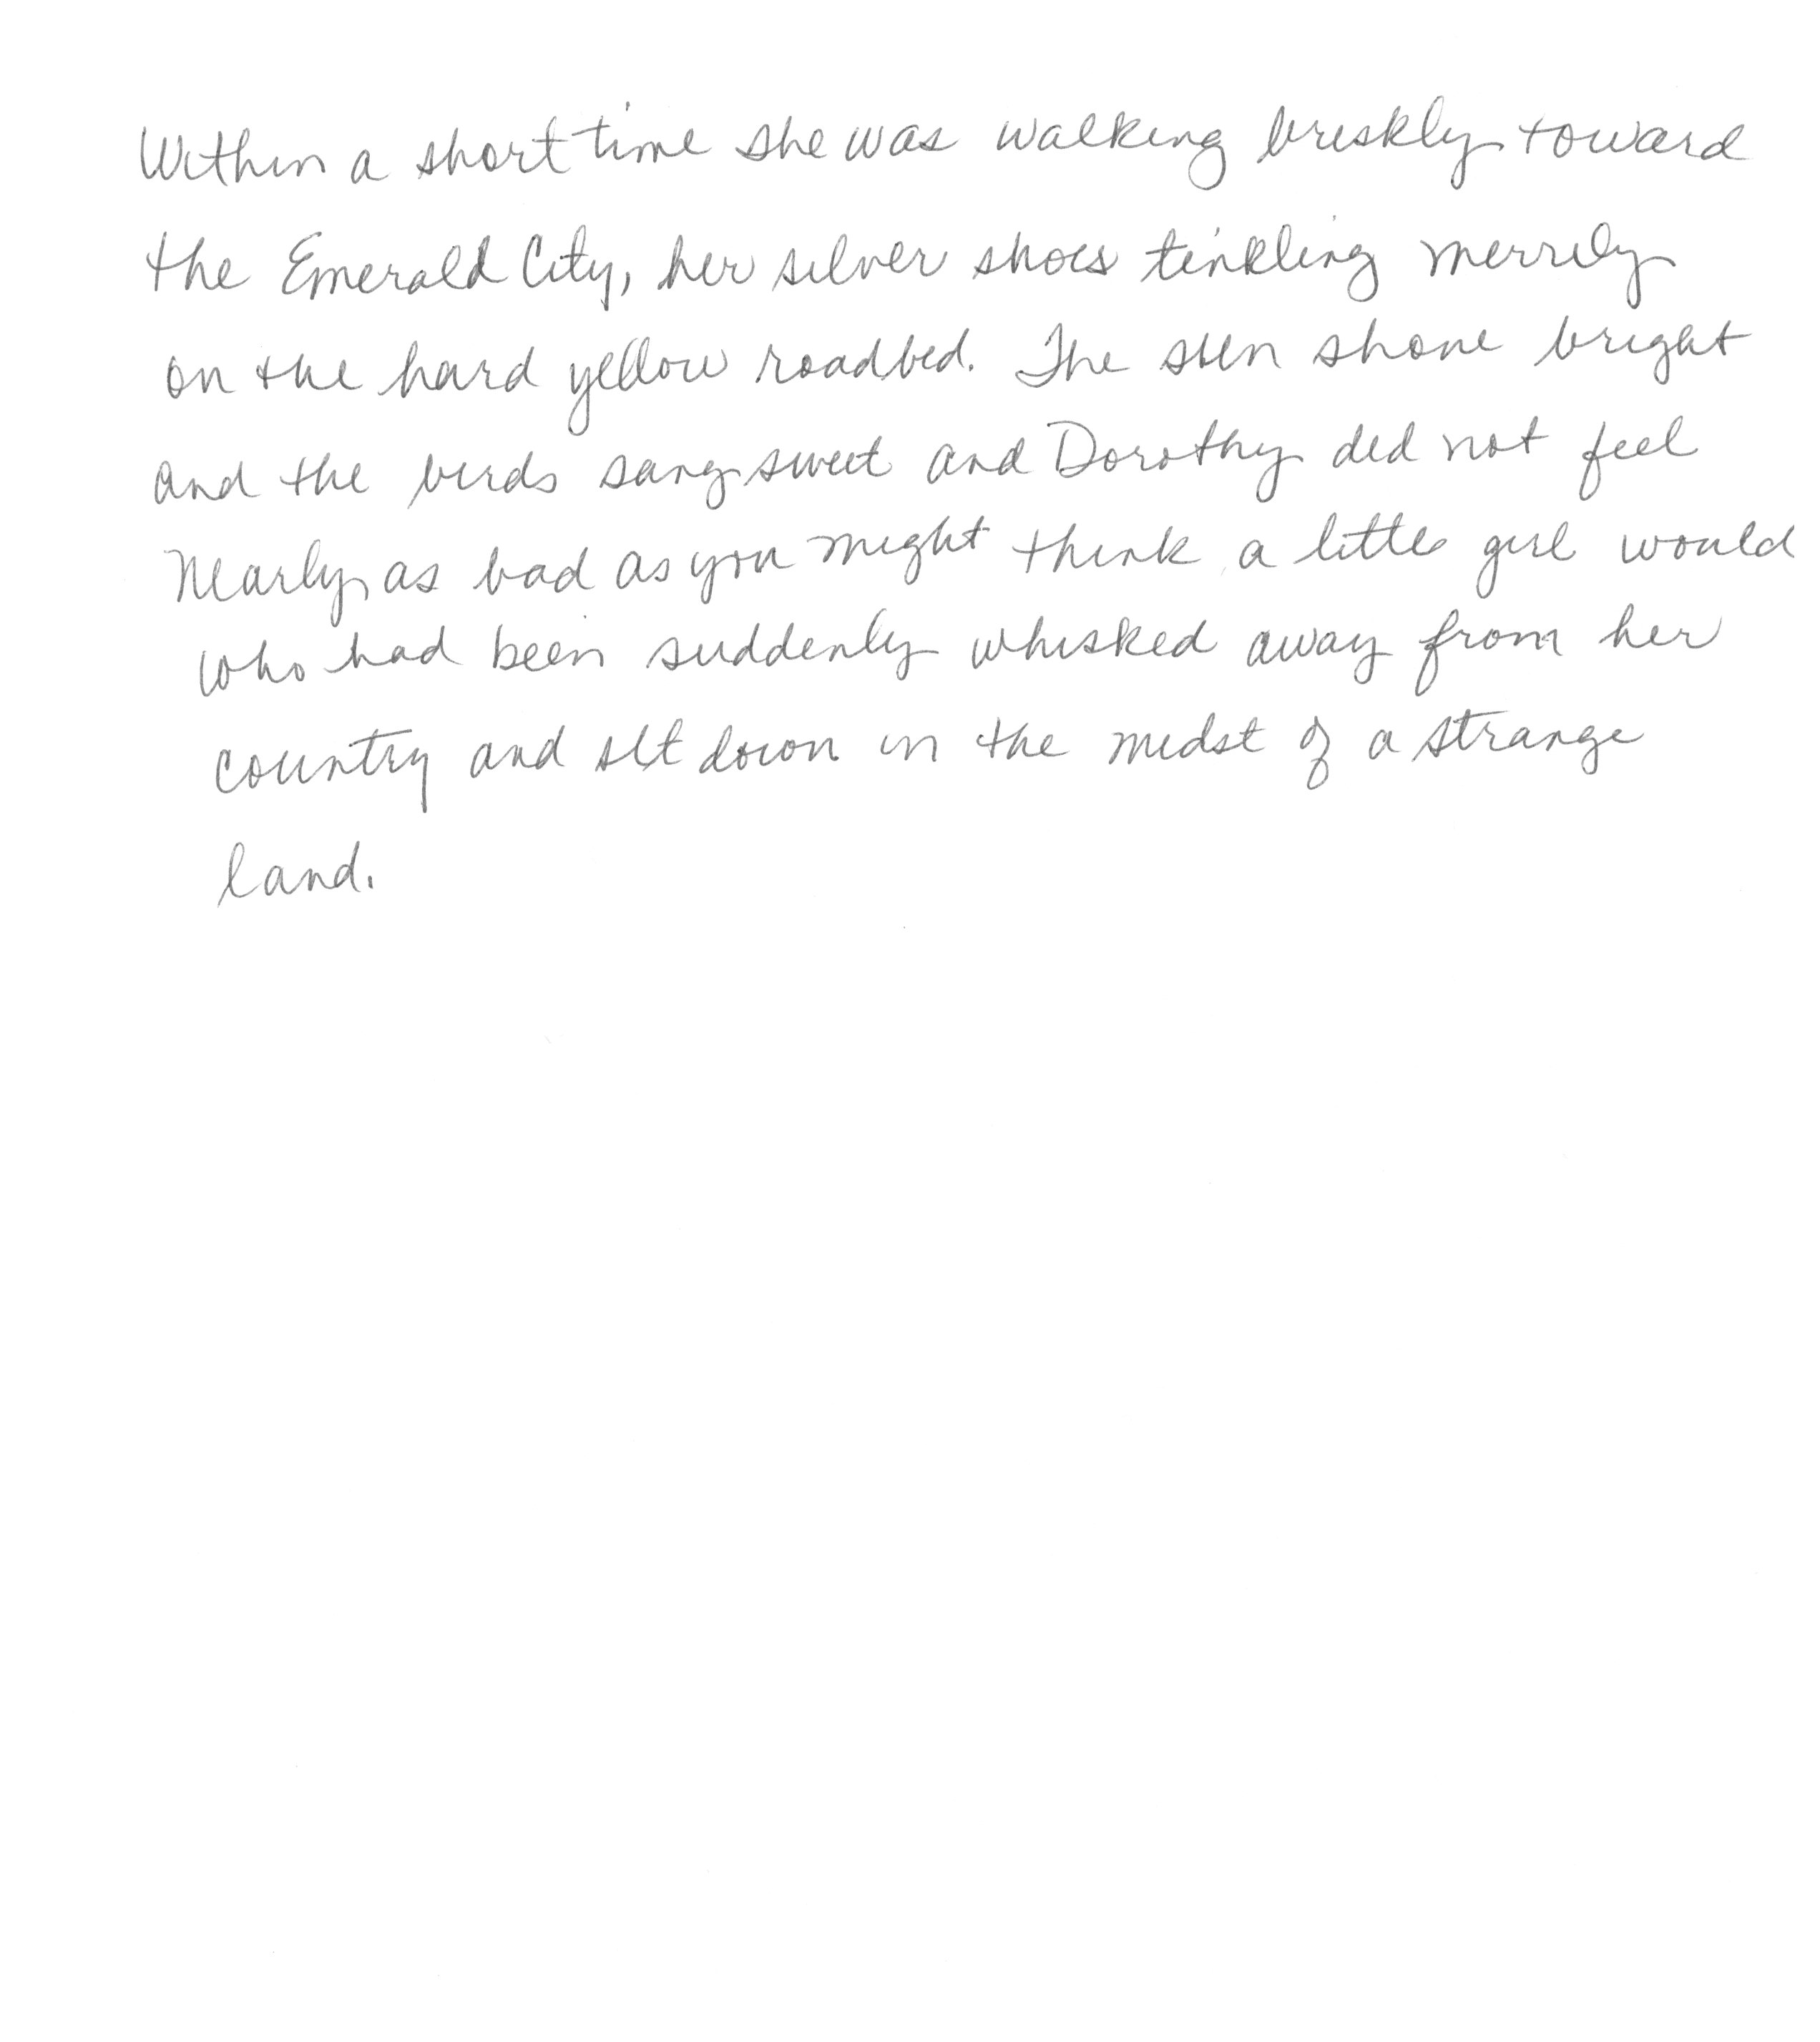 Within a short time she was walking briskly toward
the Emerald City, her silver shoes tinkling merrily
on the hard yellow roadbed. The sun shone bright
and the birds sang sweet and Dorothy did not feel
nearly as bad as you might think a little girl would
who had been suddenly whisked away from her
country and set down in the midst of a strange
land.